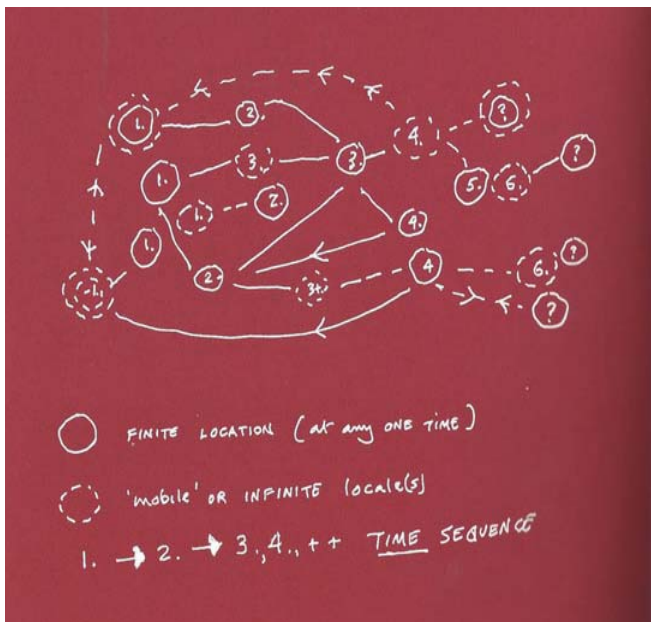 1. 2. 3. 4. ?
1. 3. 5. 6. ?
1. 2. 4.
1. 2. 3+. 4 6. ?
-1. ?
FINITE LOCATION (at any ONE TIME)
'mobile' OR INFINITE locale(s)
1. → 2. → 3., 4., + + TIME SEQUENCE